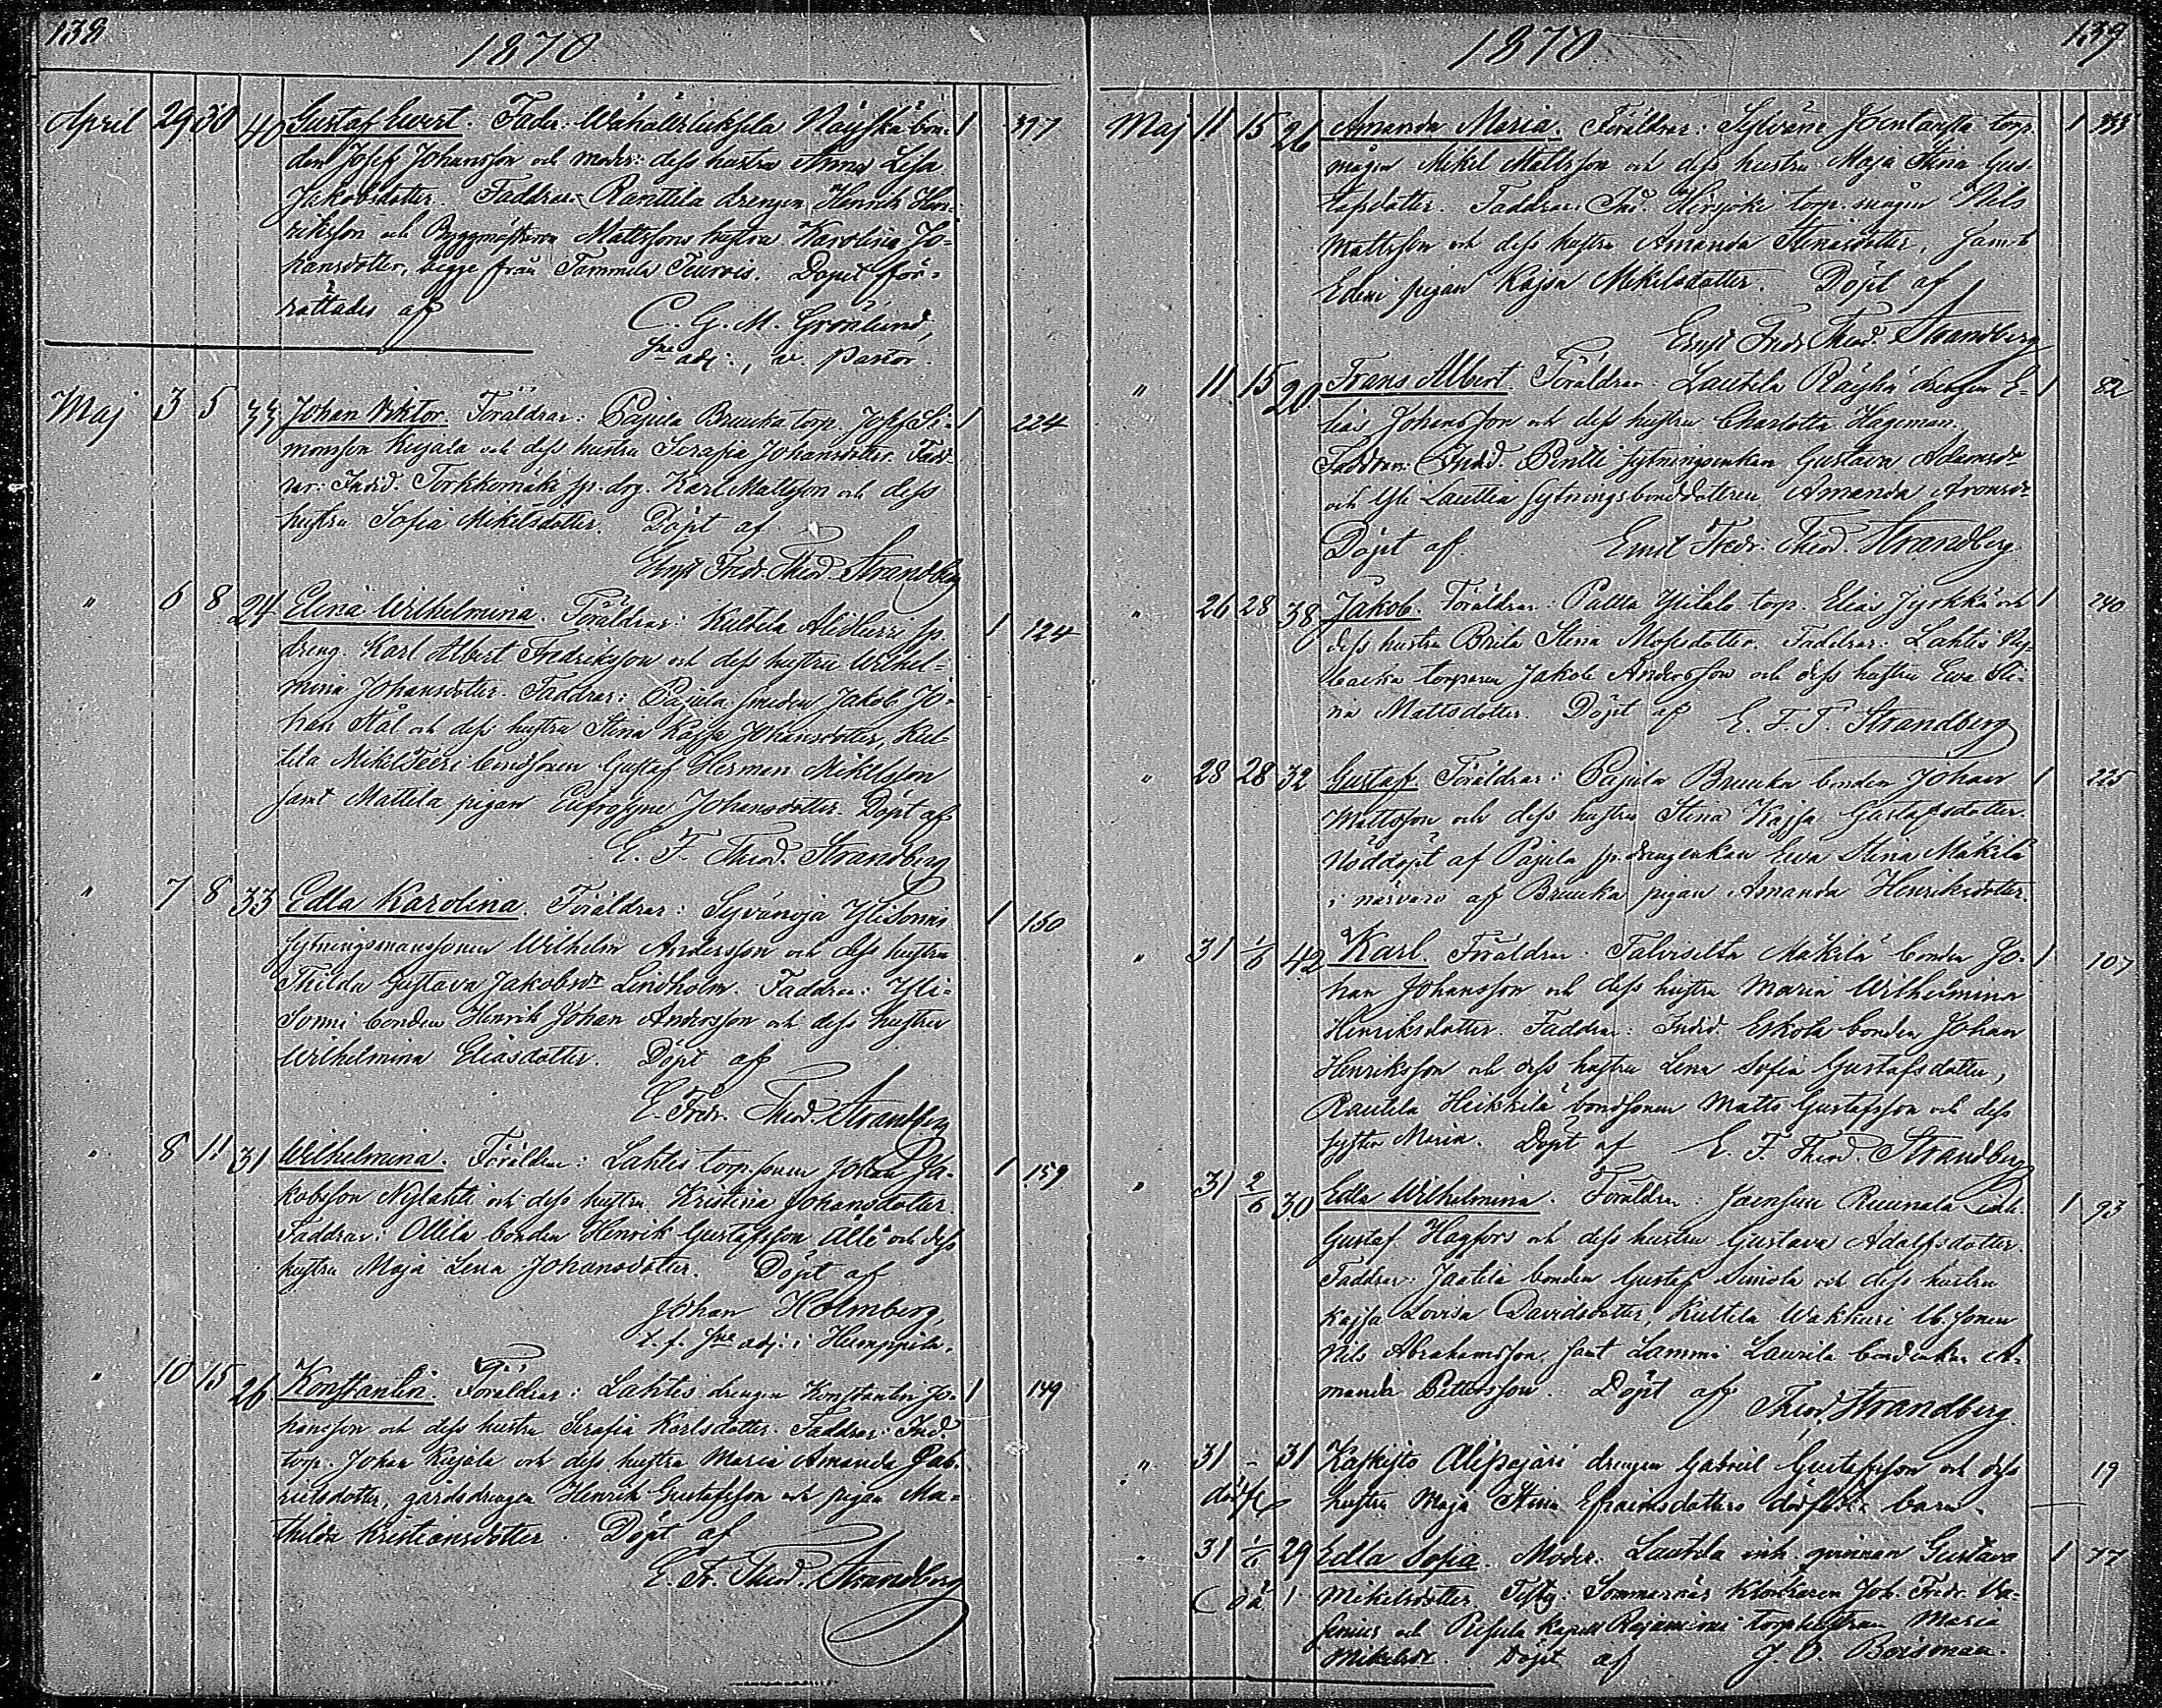 138
1870
April 29 30 40 Gustaf Evert. Fader: bon- 1 397
den Josef Johansson och moder: dess hustru Anna Lisa
Jakobsdotter. Faddrar: Ranttila drengen Henrik Hen-
riksson och Byggmästaren Mattssons hustru Karolina Jo-
hansdotter, begge från Tammela Teurois. Dopet för-
rättades af C. G. M. Grönlund,
adj:, v. Pastor.
Maj 3 5 33 Johan Viktor. Föräldrar: Pajula Bruuka torp. Josef Si- 1 224
monsson Kujala och dess hustru Serafia Johansdotter. Fadd-
rar: Indid. Torkkomäki sp. drg. Karl Mattsson och dess
hustru Sofia Mikelsdotter. Döpt af
Ernst Fredr. Theod. Strandberg
" 6 8 24 Elina Wilhelmina. Föräldrar: Kultila sp. 1 124
dreng. Karl Albert Fredriksson och dess hustru Wilhel-
mina Johansdotter. Faddrar: Pajula smeden Jakob Jo-
han Stål och dess hustru Stina Kajsa Johansdotter, Kul-
tila Mikel Teeri bondsonen Gustaf Herman Mikelsson
samt Mattila pigan Eufrosyne Johansdotter. Döpt af
E. F. Theod. Strandberg
" 7 8 33 Edla Karolina. Föräldrar: Syvänoja Ylisonni 1 150
sytningsmanssonen Wilhelm Andersson och dess hustru
Thilda Gustava Jakobsdr Lindholm. Faddrar: Yli-
Sonni bonden Henrik Johan Andersson och dess hustru
Wilhelmina Eliasdotter. Döpt af
E. Fredr. Theod. Strandberg
" 8 11 31 Wilhelmina. Föräldrar: Lahtis torp. sonen Johan Ja- 1 159
kobsson Nylahti och dess hustru Kristina Johansdotter.
Faddrar: Ollila bonden Henrik Gustafsson Älle och dess
hustru Maja Lena Johansdotter. Döpt af
Johan Holmberg,
t. f. adj. i Humppila.
" 10 15 26 Konstantin. Föräldrar: Lahtis drengen Konstantin Jo- 1 149
hansson och dess hustru Serafia Karlsdotter. Faddrar: Ind.
torp. Johan Kujala och dess hustru Maria Amanda Gab-
rielsdotter, gårdsdrengen Henrik Gustafsson och pigan Ma-
thilda Kristiansdotter. Döpt af
E. Fr. Theod. Strandberg
139
1870
Maj 11 15 26 Amanda Maria. Föräldrar: torp. 1
mågen Mikel Mattsson och dess hustru Maja Stina Gus-
tafsdotter. Faddrar: Ind. torp. mågen Nils
Mattsson och dess hustru Amanda samt
pigan Kajsa Mikelsdotter. Döpt af
Ernst Fredr. Theod. Strandberg
" 11 15 20 Frans Albert. Föräldrar: Lautela Räyhä drengen E- 1 82
lias Johansson och dess hustru Charlotta Hageman.
Faddrar: Indid. Pentti sytningsenkan Gustava Adamsdr
och Yli Lauttia sytningsbonddottren Amanda Aronsdr
Döpt af Ernst Fredr. Theod. Strandberg
" 26 28 38 Jakob. Föräldrar: torp. Elias Jyokkä och 1 240
dess hustru Brita Stina Mosesdotter. Faddrar: Lahtis Ny-
backa torparen Jakob Andersson och dess hustru Eva Sti-
na Mattsdotter. Döpt af E. F. T. Strandberg
" 28 28 32 Gustaf. Föräldrar: Pajula Bruuka bonden Johan 1 225
Mattsson och dess hustru Stina Kajsa Gustafsdotter.
Nöddöpt af Pajula sp. drengenkan Eva Stina Mäkilä
i närvaro af Bruuka pigan Amanda Henriksdotter.
" 31 1/6 42 Karl. Föräldrar: Talvisilta Mäkilä bonden Jo- 1 107
han Johansson och dess hustru Maria Wilhelmina
Henriksdotter. Faddrar: Indid. Eskola bonden Johan
Henriksson och dess hustru Lena Sofia Gustafsdotter,
Rautela Heikkilä bondsonen Matts Gustafsson och dess
syster Maria. Döpt af E. F. Theod. Strandberg
" 31 2/6 30 Edla Wilhelmina. Föräldrar: Jaensuu Ruunala inh. 1 93
Gustaf Hagfors och dess hustru Gustava Adolfsdotter.
Faddrar: Jaatila bonden Gustaf Simola och dess hustru
Kajsa Lovisa Davidsdotter, Kultila Wakkuri b. sonen
Nils Abrahamsson samt Lammi Laurila bondenkan A-
manda Pettersson. Döpt af Theod. Strandberg.
" 31 - 31 Kaskisto Alipajari drengen Gabriel Gustafsson och dess 19
dödf. hustru Maja Stina Efraimsdotters dödfödt barn.
" 31 1/6 29 Edla Sofia. Moder: Lautela inh. qvinnan Gustava 1 77
(oä) Mikelsdotter. Testes: Sommarnäs Klockaren Joh. Fredr. Va-
senius och Pusula Kapell Rajamäki torp. hustrun Maria
Mikelsdr. Döpt af J. O. Boisman.